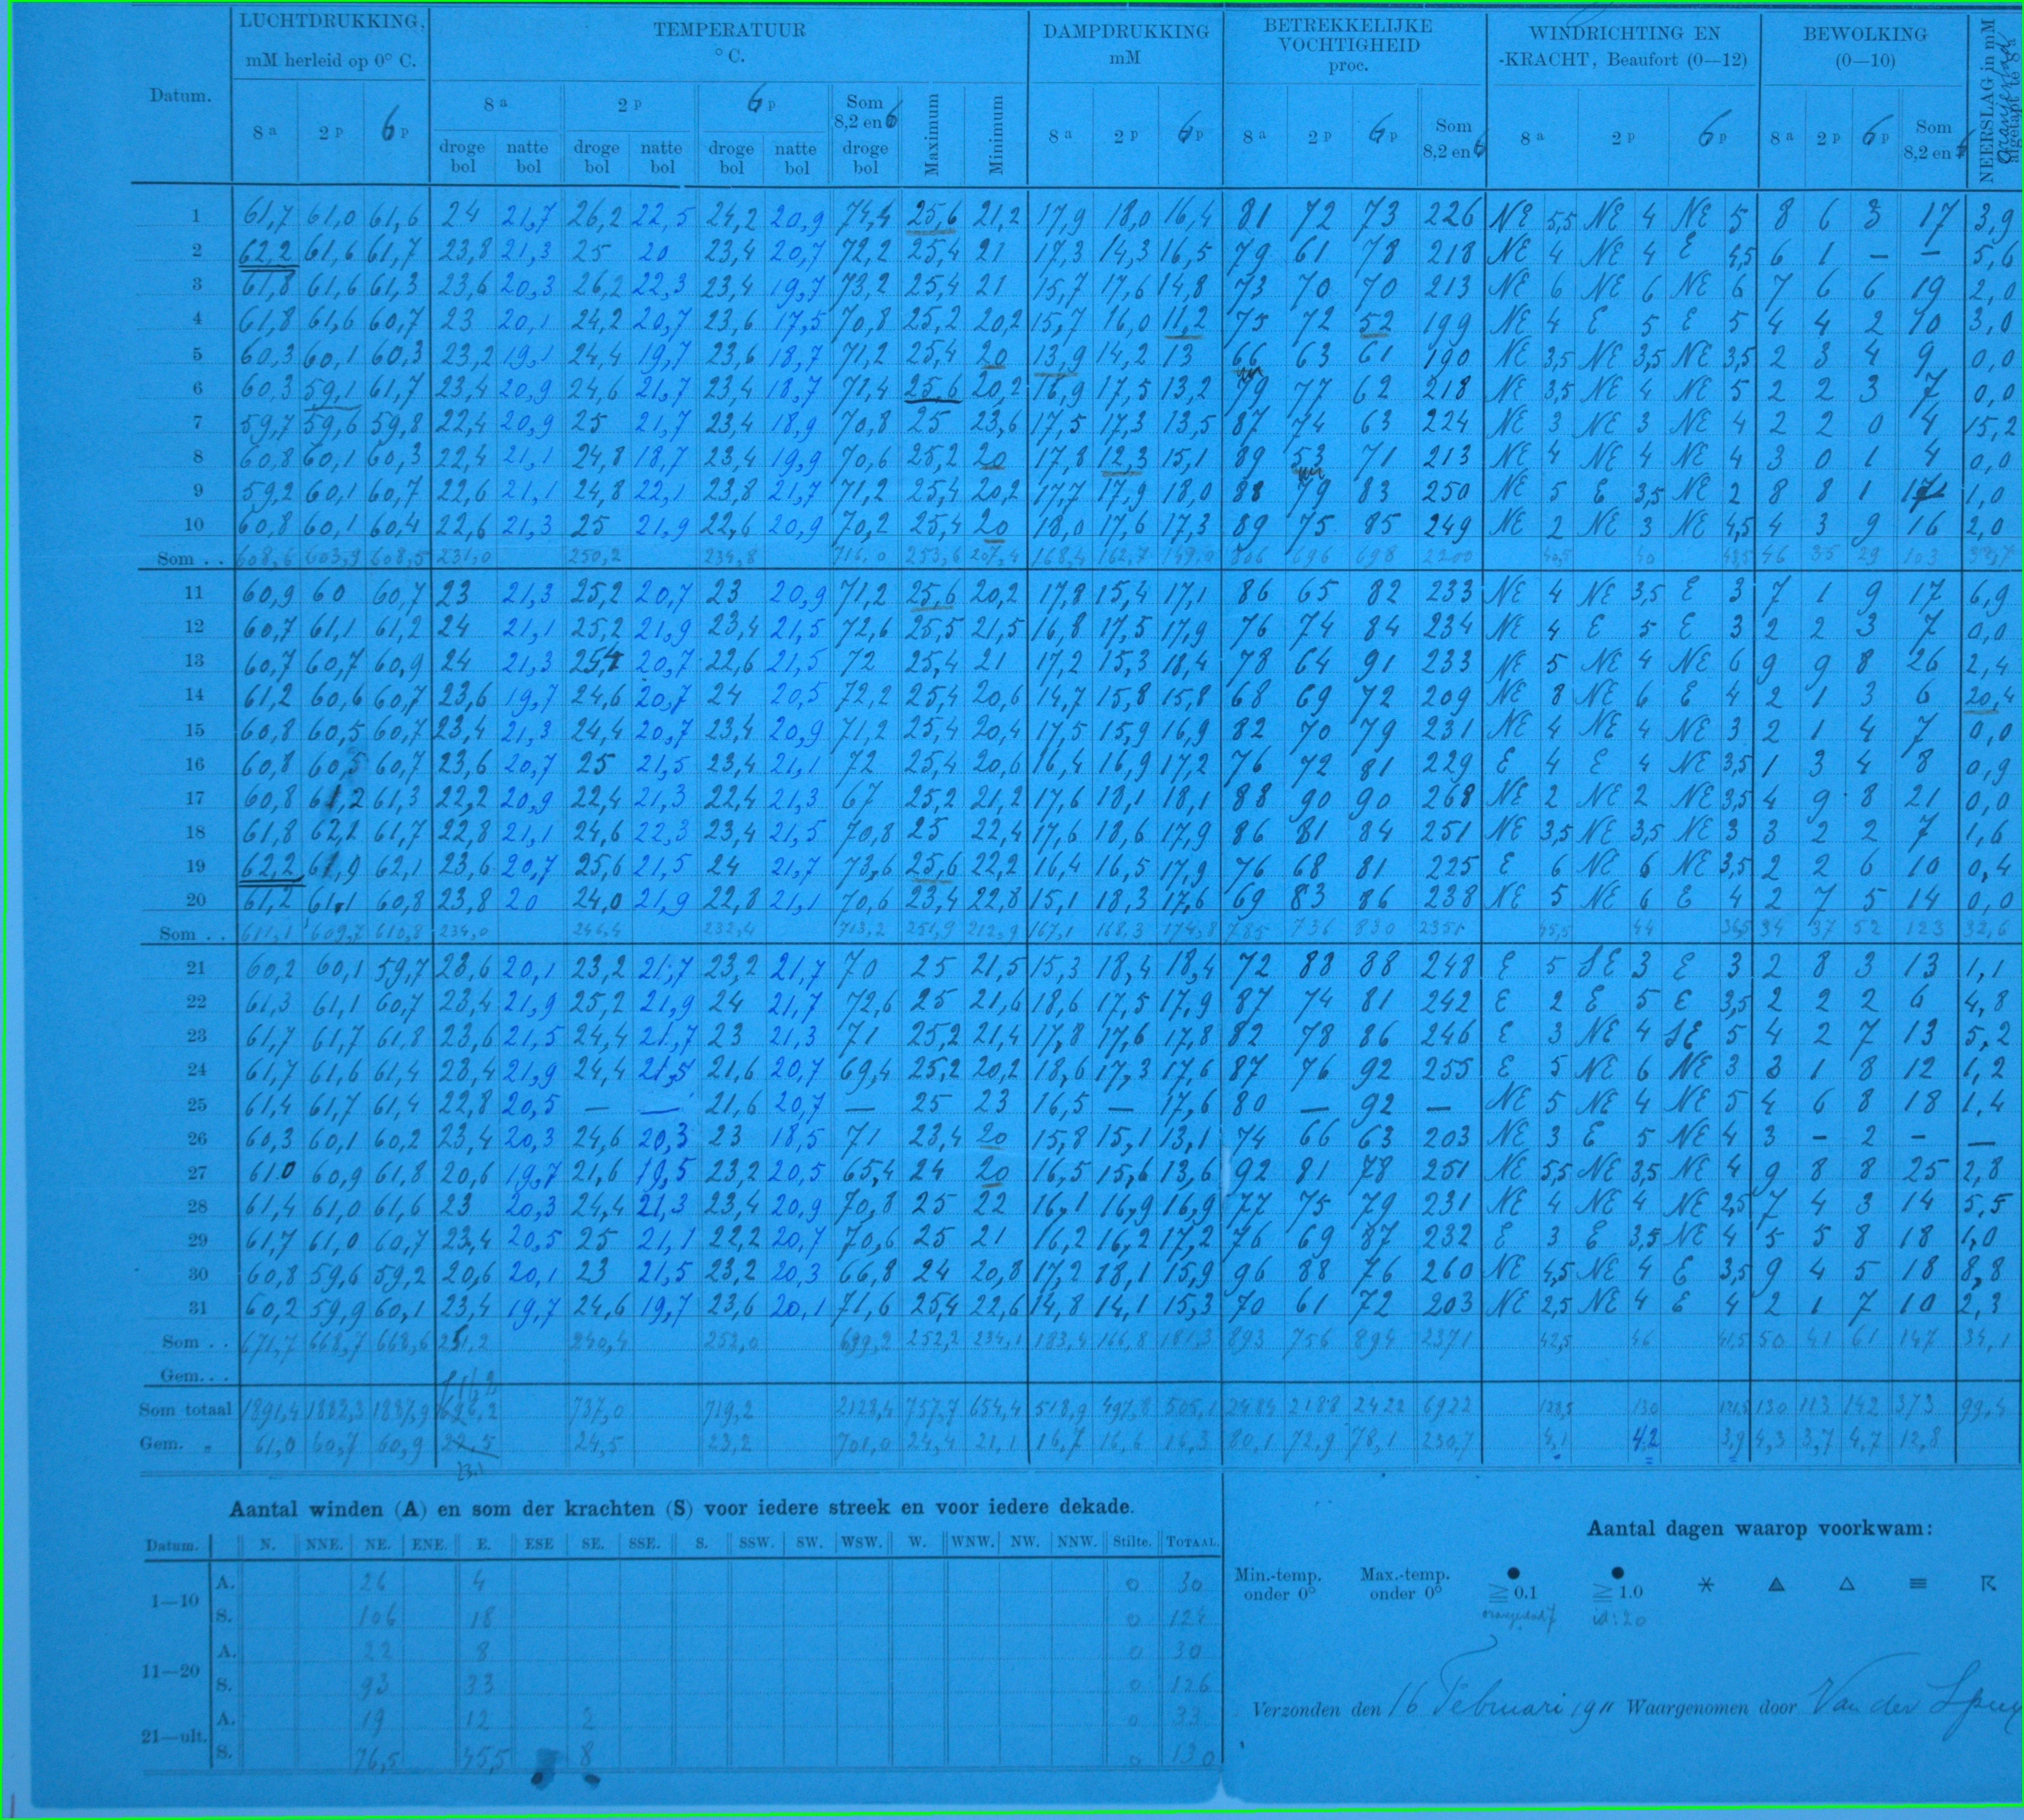 LUCHTDRUKKING, TEMPERATUUR DAMPDRUKKING BETREKKELIJKE VOCHTIGHEID WINDRICHTING EN BEWOLKING NEERSLAG in mM
mM herleid op 0° C. ° C. mM proc. -KRACHT, Beaufort (0—12) (0—10) afgetapt te 8 a
Datum. 8 a 2 p 6 p 8 a 2 p 6 p Som 8,2 en 6 Maximum Minimum 8 a 2 p 6 p 8 a 2 p 6 p Som 8,2 en 6 8 a 2 p 6 p 8 a 2 p 6 p Som 8,2 en 6
droge bol natte bol droge bol natte bol droge bol natte bol droge bol
1 61,7 61,0 61,6 24 21,7 26,2 22,5 24,2 20,9 74,4 25,6 21,2 17,9 18,0 16,4 81 72 73 226 NE 5,5 NE 4 NE 5 8 6 3 17 3,9
2 62,2 61,6 61,7 23,8 21,3 25 20 23,4 20,7 72,2 25,4 21 17,3 14,3 16,5 79 61 78 218 NE 4 NE 4 E 4,5 6 1 — — 5,6
3 61,8 61,6 61,3 23,6 20,3 26,2 22,3 23,4 19,7 73,2 25,4 21 15,7 17,6 14,8 73 70 70 213 NE 6 NE 6 NE 6 7 6 6 19 2,0
4 61,8 61,6 60,7 23 20,1 24,2 20,7 23,6 17,5 70,8 25,2 20,2 15,7 16,0 11,2 75 72 52 199 NE 4 E 5 E 5 4 4 2 10 3,0
5 60,3 60,1 60,3 23,2 19,1 24,4 19,7 23,6 18,7 71,2 25,4 20 13,9 14,2 13 66 63 61 190 NE 3,5 NE 3,5 NE 3,5 2 3 4 9 0,0
6 60,3 59,1 61,7 23,4 20,9 24,6 21,7 23,4 18,7 71,4 25,6 20,2 16,9 17,5 13,2 79 77 62 218 NE 3,5 NE 4 NE 5 2 2 3 7 0,0
7 59,7 59,6 59,8 22,4 20,9 25 21,7 23,4 18,9 70,8 25 23,6 17,5 17,3 13,5 87 74 63 224 NE 3 NE 3 NE 4 2 2 0 4 15,2
8 60,8 60,1 60,3 22,4 21,1 24,8 18,7 23,4 19,9 70,6 25,2 20 17,8 12,3 15,1 89 53 71 213 NE 4 NE 4 NE 4 3 0 1 4 0,0
9 59,2 60,1 60,7 22,6 21,1 24,8 22,1 23,8 21,7 71,2 25,4 20,2 17,7 17,9 18,0 88 79 83 250 NE 5 E 3,5 NE 2 8 8 1 17 1,0
10 60,8 60,1 60,4 22,6 21,3 25 21,9 22,6 20,9 70,2 25,4 20 18,0 17,6 17,3 89 75 85 249 NE 2 NE 3 NE 4,5 4 3 9 16 2,0
Som . . 608,6 603,9 608,5 231,0 250,2 234,8 716,0 253,6 207,4 168,4 162,7 149,0 806 696 698 2200 40,5 40 43,5 46 35 29 103
11 60,9 60 60,7 23 21,3 25,2 20,7 23 20,9 71,2 25,6 20,2 17,8 15,4 17,1 86 65 82 233 NE 4 NE 3,5 E 3 7 1 9 17 6,9
12 60,7 61,1 61,2 24 21,1 25,2 21,9 23,4 21,5 72,6 25,5 21,5 16,8 17,5 17,9 76 74 84 234 NE 4 E 5 E 3 2 2 3 7 0,0
13 60,7 60,7 60,9 24 21,3 25,4 20,7 22,6 21,5 72 25,4 21 17,2 15,3 18,4 78 64 91 233 NE 5 NE 4 NE 6 9 9 8 26 2,4
14 61,2 60,6 60,7 23,6 19,7 24,6 20,7 24 20,5 72,2 25,4 20,6 14,7 15,8 15,8 68 69 72 209 NE 8 NE 6 E 4 2 1 3 6 20,4
15 60,8 60,5 60,7 23,4 21,3 24,4 20,7 23,4 20,9 71,2 25,4 20,4 17,5 15,9 16,9 82 70 79 231 NE 4 NE 4 NE 3 2 1 4 7 0,0
16 60,8 60,5 60,7 23,6 20,7 25 21,5 23,4 21,1 72 25,4 20,6 16,4 16,9 17,2 76 72 81 229 E 4 E 4 NE 3,5 1 3 4 8 0,9
17 60,8 61,2 61,3 22,2 20,9 22,4 21,3 22,4 21,3 67 25,2 21,2 17,6 18,1 18,1 88 90 90 268 NE 2 NE 2 NE 3,5 4 9 8 21 0,0
18 61,8 62,1 61,7 22,8 21,1 24,6 22,3 23,4 21,5 70,8 25 22,4 17,6 18,6 17,9 86 81 84 251 NE 3,5 NE 3,5 NE 3 3 2 2 7 1,6
19 62,2 61,9 62,1 23,6 20,7 25,6 21,5 24 21,7 73,6 25,6 22,2 16,4 16,5 17,9 76 68 81 225 E 6 NE 6 NE 3,5 2 2 6 10 0,4
20 61,2 61,1 60,8 23,8 20 24,0 21,9 22,8 21,1 70,6 23,4 22,8 15,1 18,3 17,6 69 83 86 238 NE 5 NE 6 E 4 2 7 5 14 0,0
Som . . 611,1 609,7 610,8 234,0 246,4 232,4 713,2 251,9 212,9 167,1 168,3 174,8 785 736 830 2351 45,5 44 36,5 34 37 52 123 32,6
21 60,2 60,1 59,7 23,6 20,1 23,2 21,7 23,2 21,7 70 25 21,5 15,3 18,4 18,4 72 88 88 248 E 5 SE 3 E 3 2 8 3 13 1,1
22 61,3 61,1 60,7 23,4 21,9 25,2 21,9 24 21,7 72,6 25 21,6 18,6 17,5 17,9 87 74 81 242 E 2 E 5 E 3,5 2 2 2 6 4,8
23 61,7 61,7 61,8 23,6 21,5 24,4 21,7 23 21,3 71 25,2 21,4 17,8 17,6 17,8 82 78 86 246 E 3 NE 4 SE 5 4 2 7 13 5,2
24 61,7 61,6 61,4 23,4 21,9 24,4 21,5 21,6 20,7 69,4 25,2 20,2 18,6 17,3 17,6 87 76 92 255 E 5 NE 6 NE 3 3 1 8 12 1,2
25 61,4 61,7 61,4 22,8 20,5 — — 21,6 20,7 — 25 23 16,5 — 17,6 80 — 92 — NE 5 NE 4 NE 5 4 6 8 18 1,4
26 60,3 60,1 60,2 23,4 20,3 24,6 20,3 23 18,5 71 23,4 20 15,8 15,1 13,1 74 66 63 203 NE 3 E 5 NE 4 3 — 2 — —
27 61.0 60,9 61,8 20,6 19,7 21,6 19,5 23,2 20,5 65,4 24 20 16,5 15,6 13,6 92 81 78 251 NE 5,5 NE 3,5 NE 4 9 8 8 25 2,8
28 61,4 61,0 61,6 23 20,3 24,4 21,3 23,4 20,9 70,8 25 22 16,1 16,9 16,9 77 75 79 231 NE 4 NE 4 NE 2,5 7 4 3 14 5,5
29 61,7 61,0 60,7 23,4 20,5 25 21,1 22,2 20,7 70,6 25 21 16,2 16,2 17,2 76 69 87 232 E 3 E 3,5 NE 4 5 5 8 18 1,0
30 60,8 59,6 59,2 20,6 20,1 23 21,5 23,2 20,3 66,8 24 20,8 17,2 18,1 15,9 96 88 76 260 NE 4,5 NE 4 E 3,5 9 4 5 18 8,8
31 60,2 59,9 60,1 23,4 19,7 24,6 19,7 23,6 20,1 71,6 25,4 22,6 14,8 14,1 15,3 70 61 72 203 NE 2,5 NE 4 E 4 2 1 7 10 2,3
Som . . 671,7 668,7 668,6 251,2 240,4 252,0 699,2 252,2 234,1 183,4 166,8 181,3 893 756 894 2371 42,5 46 41,5 50 41 61 147 34,1
Gem. . .
Som totaal 1891,4 1882,3 1887,9 737,0 719,2 2128,4 757,7 654,4 518,9 497,8 505,1 2484 2188 2422 6922 128,5 130 121,5 130 113 142 373 99,4
Gem. „ 61,0 60,7 60,9 22,5 24,5 23,2 701,0 24,4 21,1 16,7 16,6 16,3 80,1 72,9 78,1 230,7 4,1 4,2 3,9 4,3 3,7 4,7 12,8
23.1
Aantal winden (A) en som der krachten (S) voor iedere streek en voor iedere dekade.
Datum. N. NNE. NE. ENE. E. ESE SE. SSE. S. SSW. SW. WSW. W. WNW. NW. NNW. Stilte. TOTAAL.
1—10 A. 26 4 0 30
S. 106 18 0 124
11—20 A. 22 8 0 30
S. 93 33 0 126
21—ult. A. 19 12 2 0 33
S. 76,5 45,5 8 0 130
Aantal dagen waarop voorkwam:
Min.-temp. onder 0° Max.-temp. onder 0° ≧ 0.1 ≧ 1.0
id: 20
Verzonden den 16 Februari 1911 Waargenomen door Van der